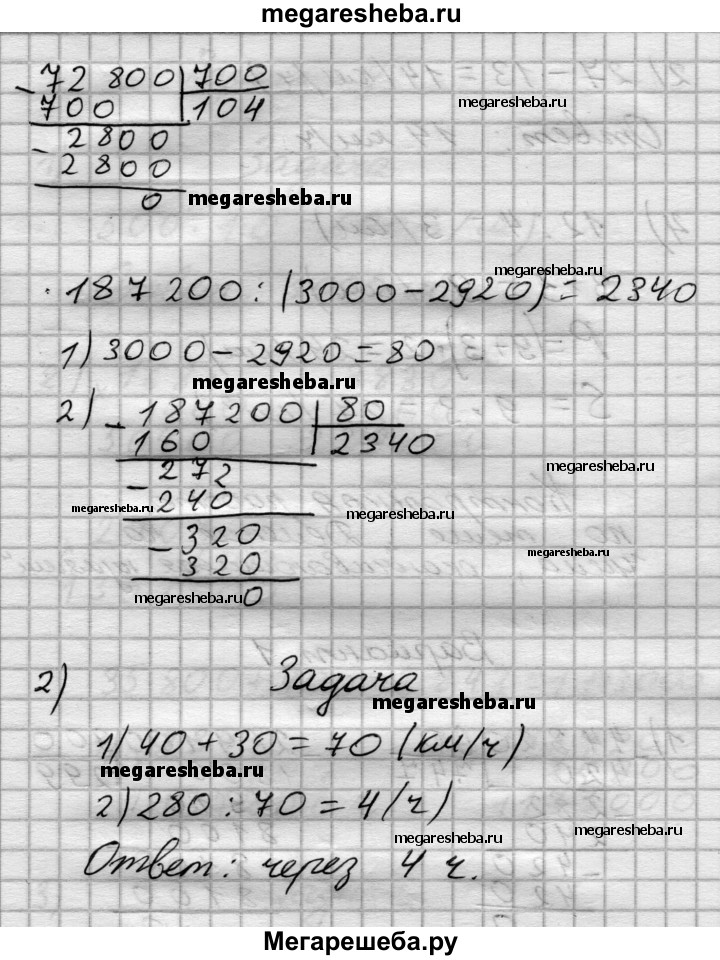 megaresheba.ru
- 72 800 | 700
700 | 104
megaresheba.ru
- 2800
2800
0
megaresheba.ru
megaresheba.ru
· 187 200 : (3000 - 2920) = 2340
1) 3000 - 2920 = 80
megaresheba.ru
2) - 187200 | 80
160 | 2340
- 272
megaresheba.ru
megaresheba.ru
240
megaresheba.ru
- 320
megaresheba.ru
320
megaresheba.ru
0
2) Задача
megaresheba.ru
1) 40 + 30 = 70 (км/ч)
megaresheba.ru
2) 280 : 70 = 4 (ч)
megaresheba.ru
megaresheba.ru
Ответ: через 4 ч.
Мегарешеба.ру